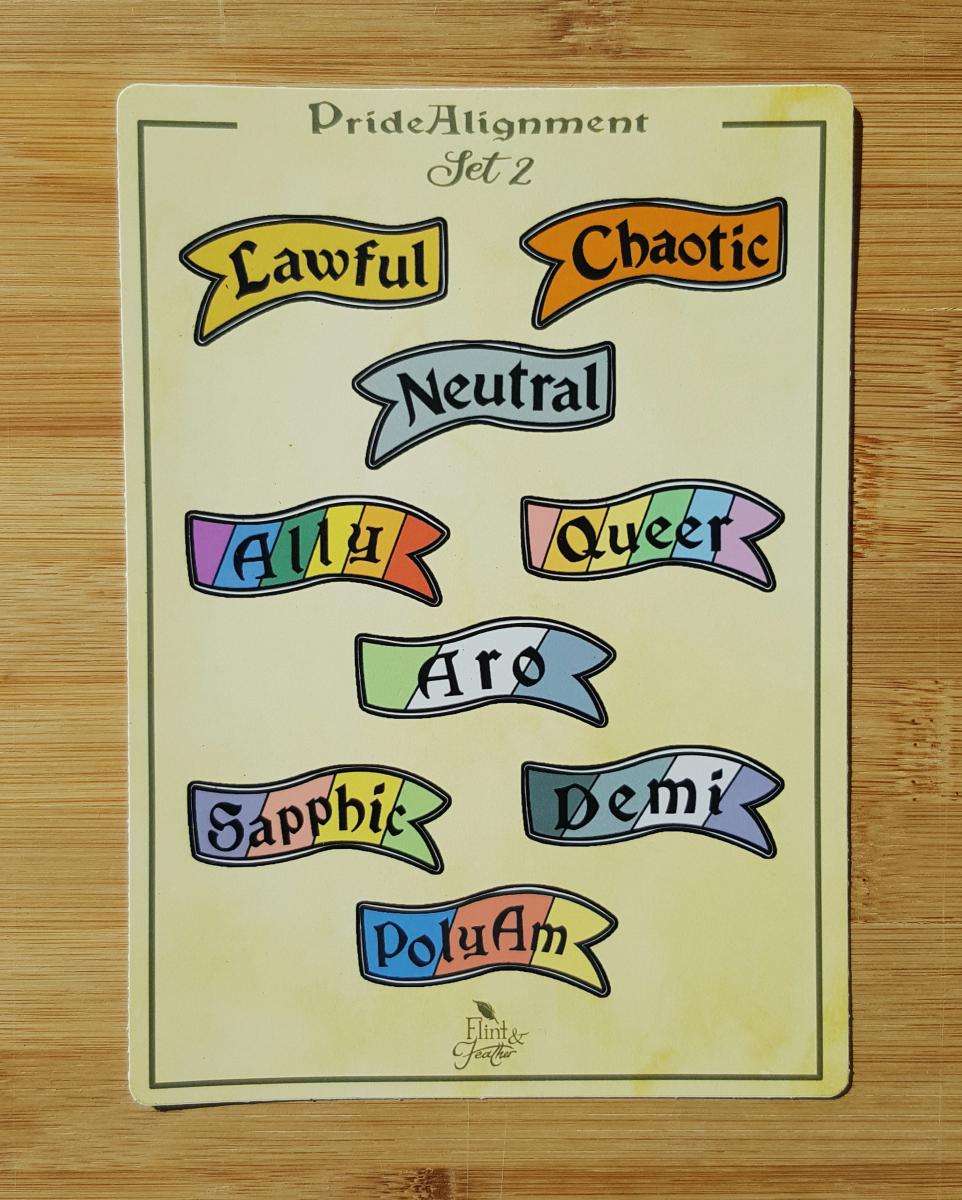 PrideAlignment
Set 2
Lawful
Chaotic
Neutral
Ally
Queer
Aro
Sapphic
Demi
PolyAm
Flint &
Feather